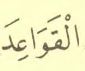 الْقَوَاعِدَ